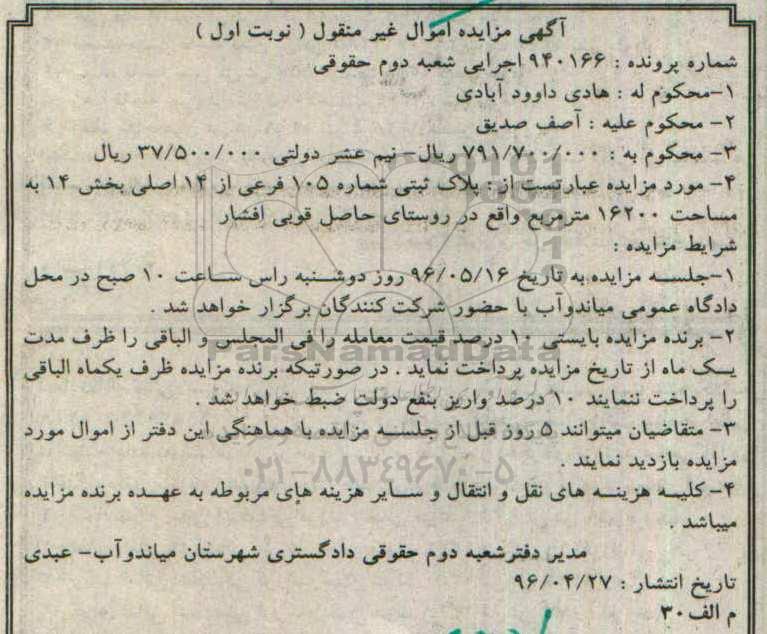 آگهی مزایده اموال غیر منقول ( نوبت اول )
شماره پرونده : ۹۴۰۱۶۶ اجرایی شعبه دوم حقوقی
۱-محکوم له : هادی داوود آبادی
۲- محکوم علیه : آصف صدیق
۳- محکوم به : ۷۹۱/۷۰۰/۰۰۰ ریال- نیم عشر دولتی ۳۷/۵۰۰/۰۰۰ ریال
۴- مورد مزایده عبارتست از : پلاک ثبتی شماره ۱۰۵ فرعی از ۱۴ اصلی بخش ۱۴ به
مساحت ۱۶۲۰۰ مترمربع واقع در روستای حاصل قوبی افشار
شرایط مزایده :
۱-جلسه مزایده به تاریخ ۹۶/۰۵/۱۶ روز دوشنبه راس ساعت ۱۰ صبح در محل
دادگاه عمومی میاندوآب با حضور شرکت کنندگان برگزار خواهد شد .
۲- برنده مزایده بایستی ۱۰ درصد قیمت معامله را فی المجلس و الباقی را ظرف مدت
یک ماه از تاریخ مزایده پرداخت نماید . در صورتیکه برنده مزایده ظرف یکماه الباقی
را پرداخت ننمایند ۱۰ درصد واریز بنفع دولت ضبط خواهد شد .
۳- متقاضیان میتوانند ۵ روز قبل از جلسه مزایده با هماهنگی این دفتر از اموال مورد
مزایده بازدید نمایند .
۴- کلیه هزینه های نقل و انتقال و سایر هزینه های مربوطه به عهده برنده مزایده
میباشد .
مدیر دفترشعبه دوم حقوقی دادگستری شهرستان میاندوآب- عبدی
تاریخ انتشار : ۹۶/۰۴/۲۷
م الف ۳۰
ParsNamadData
۰۲۱-۸۸۳۴۹۶۷۰-۵